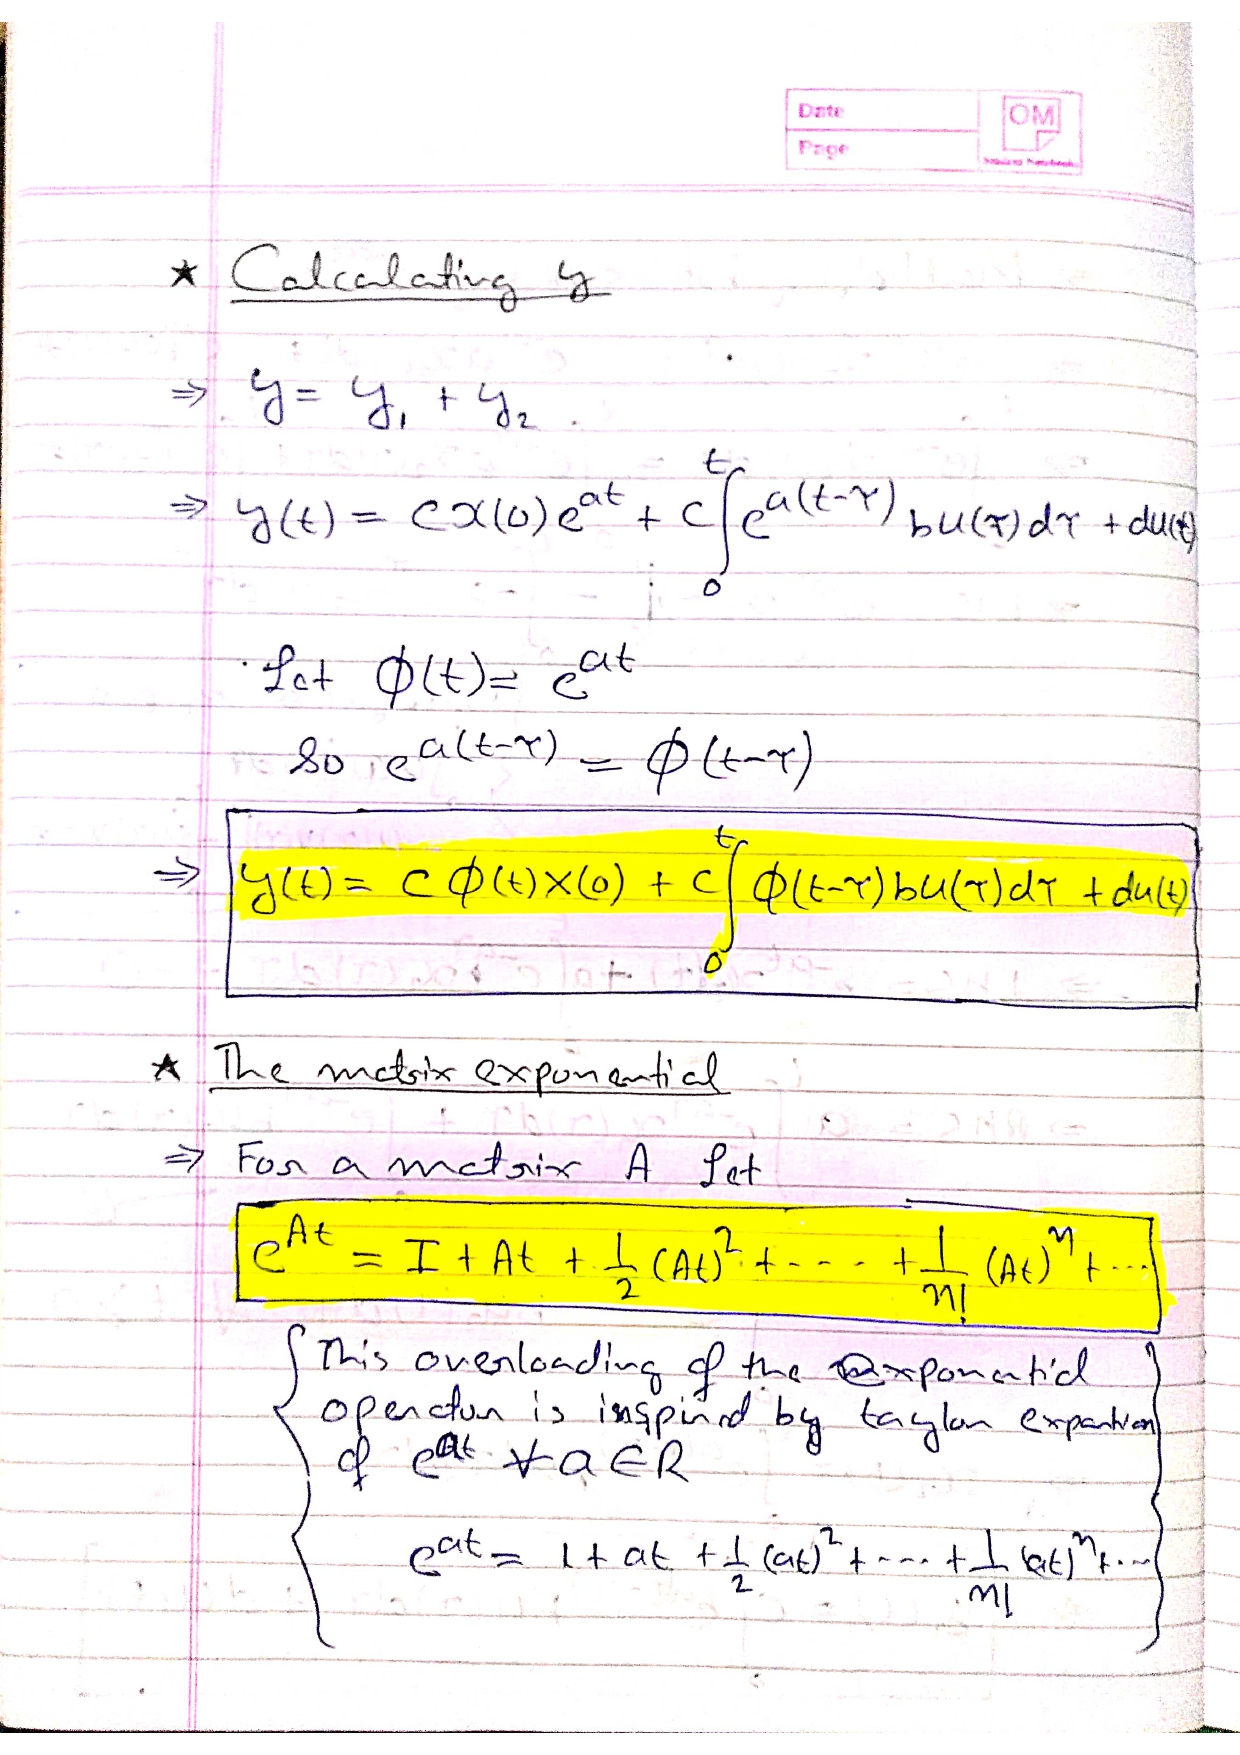 Date
OM
Page
★ Calculating y
⇒ y = y₁ + y₂
⇒ y(t) = c x(0) e^{at} + c ∫₀ᵗ e^{a(t-τ)} bu(τ) dτ + du(t)
Let ϕ(t) = e^{at}
So e^{a(t-τ)} = ϕ(t-τ)
⇒ y(t) = c ϕ(t) x(0) + c ∫₀ᵗ ϕ(t-τ) bu(τ) dτ + du(t)
★ The matrix exponential
⇒ For a matrix A Let
e^{At} = I + At + 1/2 (At)² + - - - + 1/n! (At)ⁿ + ...
{ This overloading of the exponential
operator is inspired by taylor expantion
of e^{at} ∀ a ∈ R
e^{at} = 1 + at + 1/2 (at)² + - - - + 1/n! (at)ⁿ + ... }